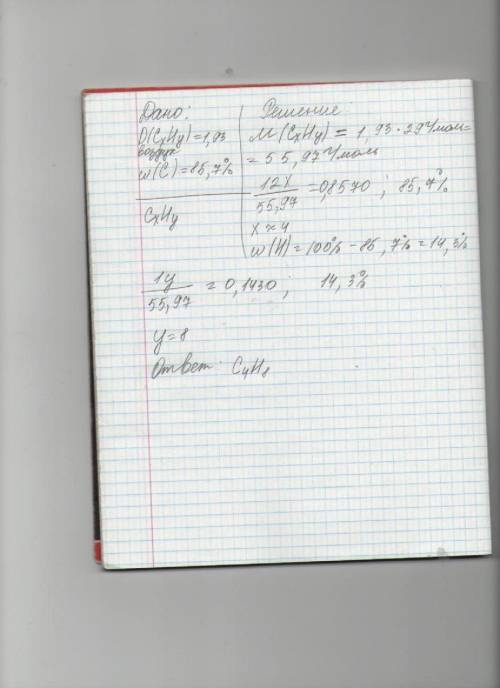 Дано:
D(CxHy)=1,93
воздух
w(C)=85,7%
CxHy
Решение
M(CxHy) = 1,93·29г/моль=
= 55,97г/моль
12x/55,97 = 0,8570 ; 85,7%
x≈4
w(H)=100% - 85,7%=14,3%
1y/55,97 = 0,1430 ; 14,3%
y=8
Ответ: C4H8